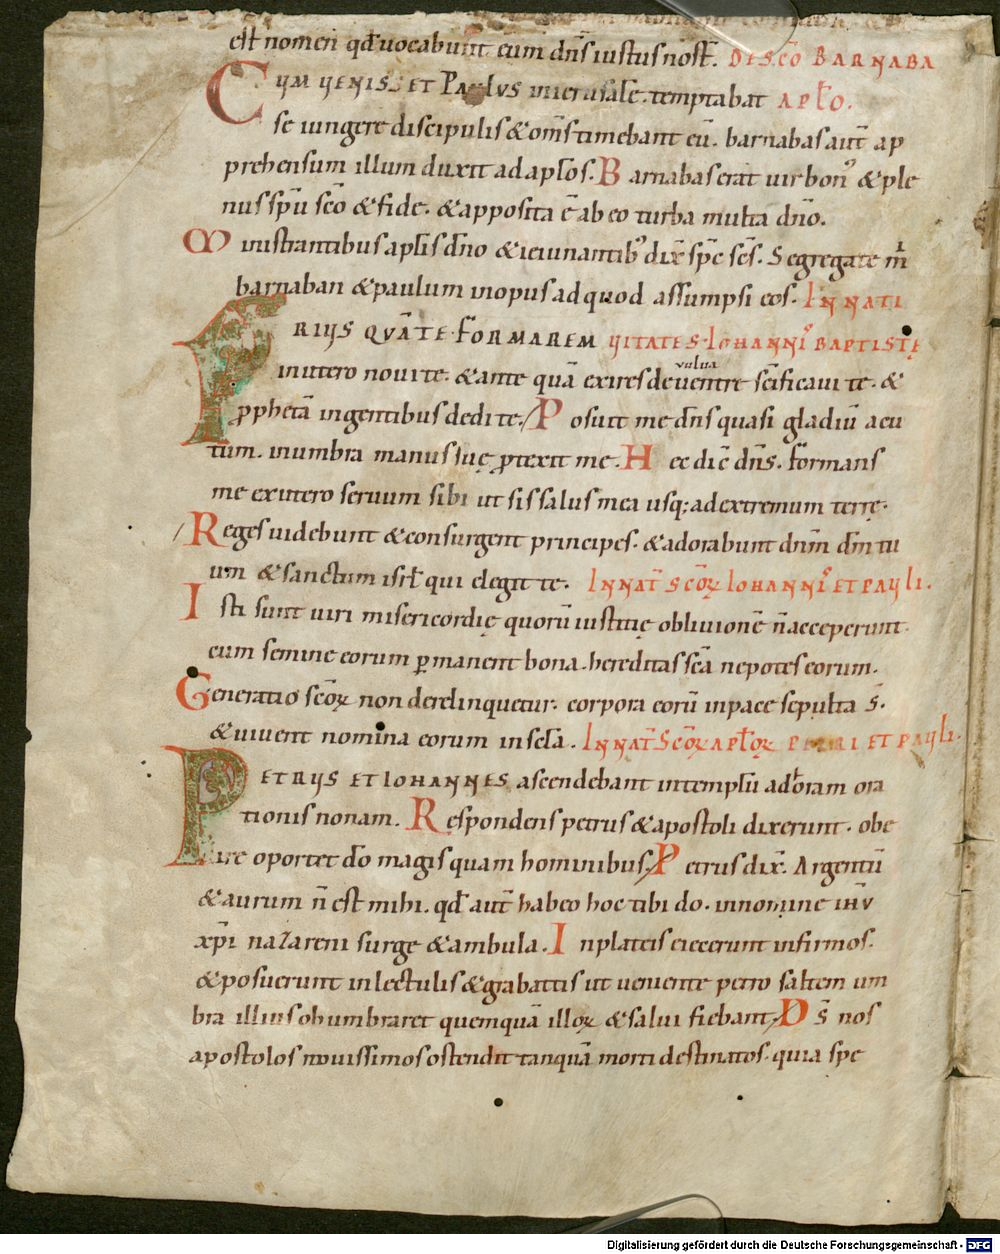 est nomen qđ uocabunt eum dñs iustus nost̃. DE SCŌ BARNABA
CUM UENISSET PAULUS in ierusałē. temptabat APŁO.
se iungere discipulis & om̃s timebant eū. barnabas aut̃ ap
prehensum illum duxit ad apłos. Barnabas erat uir bon᾽ & ple
nus spū scō & fide. & apposita ē ab eo turba multa dño.
Ministrantibus apłis dño & ieiunantib᾽ dix̃ spc̄ sc̄s. Segregate m̄
barnaban & paulum in opus ad quod assumpsi eos. IN NATI
PRIUS QUĀ TE FORMAREM UITATE S. IOHANNI᾽ BAPTISTĘ
uulua
in utero noui te. & ante quā exires de uentre sc̄ificaui te. &
ꝓphetā in gentibus dedi te. Posuit me dñs quasi gladiū acu
tum. in umbra manus suę ꝓtexit me. Hec dic̄ dñs. formans
me ex utero seruum sibi ut sis salus mea usq; ad extremum terrę.
Reges uidebunt & consurgent principes. & adorabunt dñm dm̄ tu
um & sanctum isrł qui elegit te. IN NAT̃ SCŌꝜ IOHANNI᾽ ET PAULI.
Isti sunt uiri misericordię quorū iustitię obliuionē ñ acceperunt.
cum semine eorum ꝑmanent bona. hereditas scā nepotes eorum.
Generatio scōꝝ non derelinquetur. corpora eorū in pace sepulta s̄.
& uiuent nomina eorum in sclā. IN NAT̃ SCŌꝜ APŁOꝜ PETRI ET PAULI.
PETRUS ET IOHANNES ascendebant in templū ad horam ora
tionis nonam. Respondens petrus & apostoli dixerunt. obe
dire oportet dō magis quam hominibus. Petrus dix̃. Argentū
& aurum ñ est mihi. qđ aut̃ habeo hoc tibi do. in nomine ihū
xp̄i nazareni surge & ambula. In plateis eiecerunt infirmos.
& posuerunt in lectulis & grabattis ut ueniente petro saltem um
bra illius obumbraret quemquā illoꝝ & salui fiebant. Ds̄ nos
apostolos nouissimos ostendit tanquā morti destinatos. quia spe
Digitalisierung gefördert durch die Deutsche Forschungsgemeinschaft - DFG